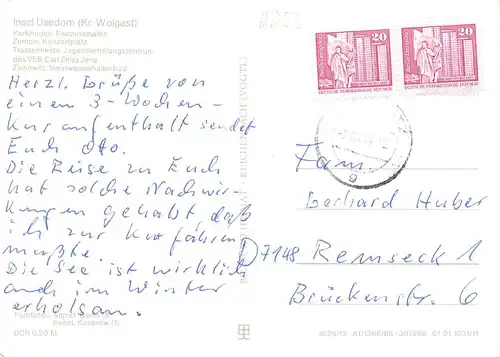 Insel Usedom (Kr. Wolgast)
Karlshagen, Fischereihafen
Zempin, Konzertplatz
Trassenheide, Jugenderholungszentrum
des VEB Carl Zeiss Jena
Zinnowitz, Meerwasserhallenbad
Herzl. Grüße von
einem 3-Wochen-
Kuraufenthalt sendet
Euch Otto.
Die Reise zu Euch
hat solche Nachwir-
kungen gehabt, daß
ich zur Kur fahren
mußte.
Die See ist wirklich
auch im Winter
erholsam.
(1)
DDR 0,20 M
BILD UND HEIMAT REICHENBACH (VOGTL)
20
20
DEUTSCHE DEMOKRATISCHE REPUBLIK
DEUTSCHE DEMOKRATISCHE REPUBLIK
Fam.
Gerhard Huber
D7148 Remseck 1
Brückenstr. 6